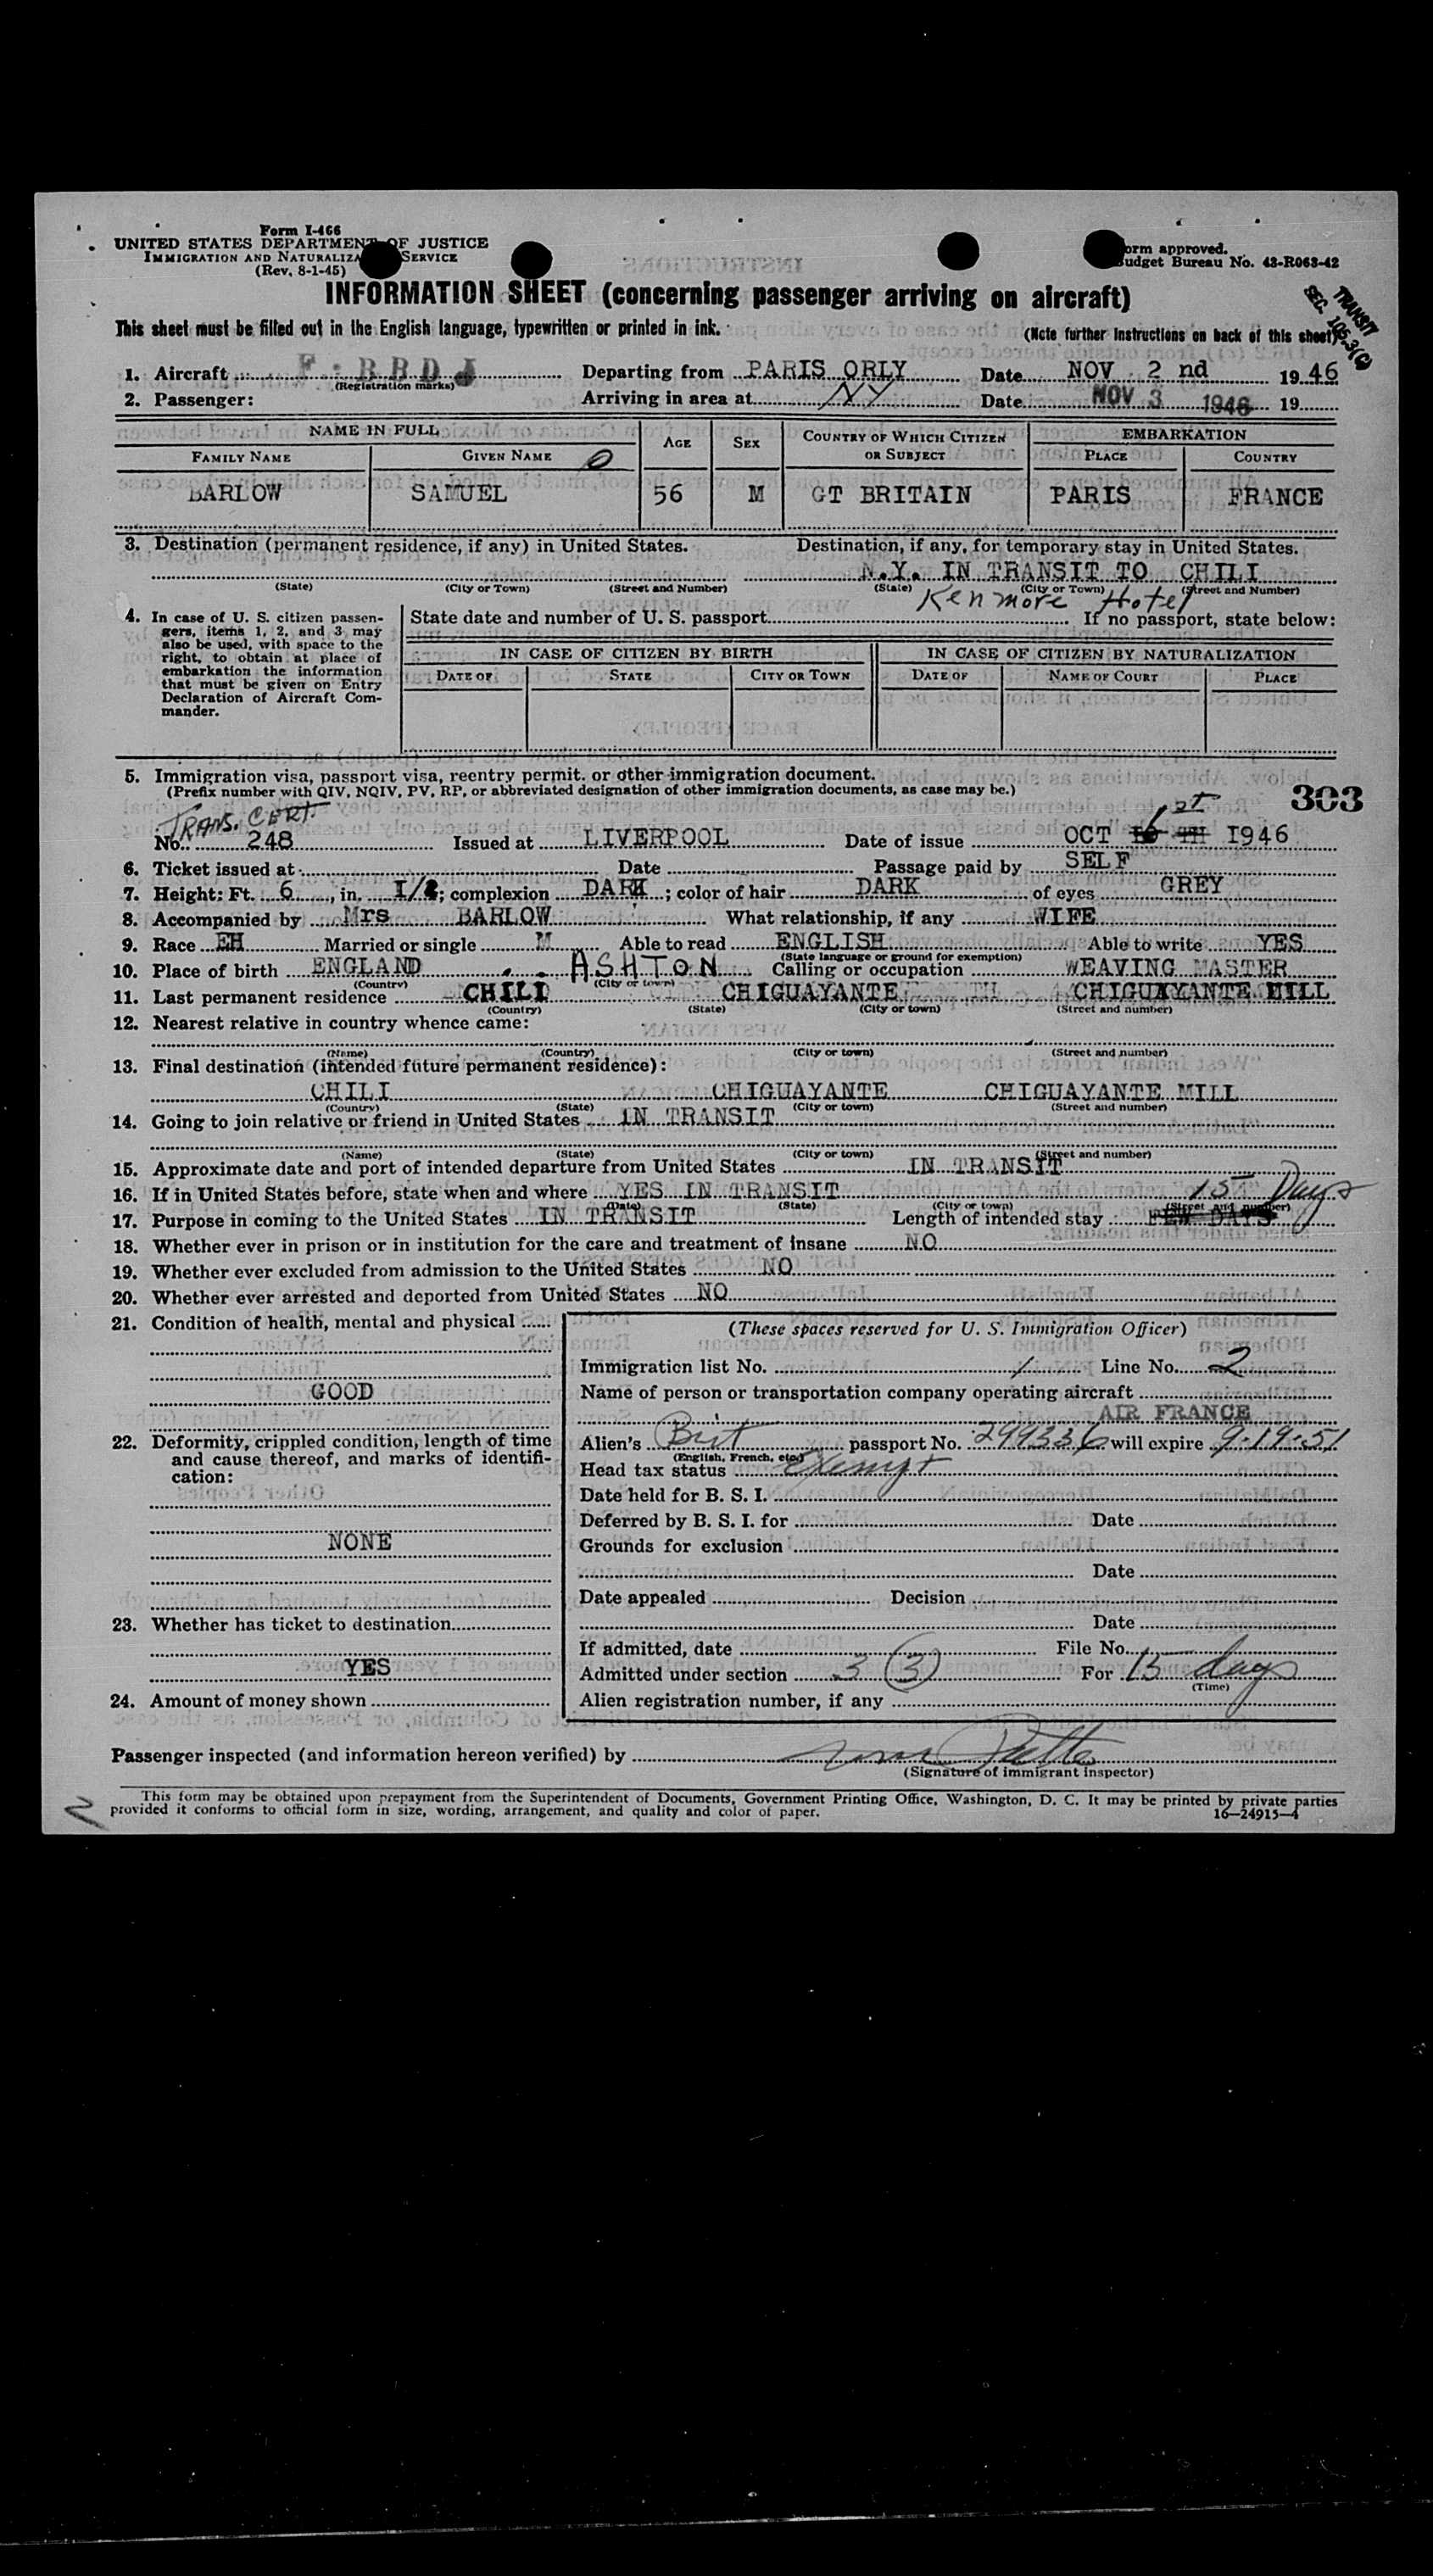 Form I-466
UNITED STATES DEPARTMENT OF JUSTICE
IMMIGRATION AND NATURALIZA SERVICE
(Rev. 8-1-45)
orm approved.
udget Bureau No. 43-R063-42
TRANSIT
SEC. 105.3(C)
INFORMATION SHEET (concerning passenger arriving on aircraft)
This sheet must be filled out in the English language, typewritten or printed in ink.
(Note further instructions on back of this sheet)
1. Aircraft F : B B D J Departing from PARIS ORLY Date NOV 2 nd 1946
(Registration marks)
2. Passenger: Arriving in area at NY Date NOV 3 1946 19
NAME IN FULL AGE SEX COUNTRY OF WHICH CITIZEN OR SUBJECT EMBARKATION
FAMILY NAME GIVEN NAME PLACE COUNTRY
BARLOW SAMUEL 56 M GT BRITAIN PARIS FRANCE
3. Destination (permanent residence, if any) in United States. Destination, if any, for temporary stay in United States.
N.Y. IN TRANSIT TO CHILI
(State) (City or Town) (Street and Number) (State) (City or Town) (Street and Number)
Kenmore Hotel
4. In case of U. S. citizen passengers, items 1, 2, and 3 may
also be used, with space to the
right, to obtain at place of
embarkation the information
that must be given on Entry
Declaration of Aircraft Commander.
State date and number of U. S. passport If no passport, state below:
IN CASE OF CITIZEN BY BIRTH IN CASE OF CITIZEN BY NATURALIZATION
DATE OF STATE CITY OR TOWN DATE OF NAME OF COURT PLACE
5. Immigration visa, passport visa, reentry permit, or other immigration document.
(Prefix number with QIV, NQIV, PV, RP, or abbreviated designation of other immigration documents, as case may be.)
303
TRANS. CERT.
No. 248 Issued at LIVERPOOL Date of issue OCT 1946
6. Ticket issued at Date Passage paid by SELF
7. Height: Ft. 6, in. I/2; complexion DARK; color of hair DARK of eyes GREY
8. Accompanied by Mrs BARLOW What relationship, if any WIFE
9. Race EH Married or single M Able to read ENGLISH Able to write YES
(State language or ground for exemption)
10. Place of birth ENGLAND ASHTON Calling or occupation WEAVING MASTER
(Country) (City or town)
11. Last permanent residence CHILI CHIGUAYANTE CHIGUAYANTE MILL
(Country) (State) (City or town) (Street and number)
12. Nearest relative in country whence came:
(Name) (Country) (City or town) (Street and number)
13. Final destination (intended future permanent residence):
CHILI CHIGUAYANTE CHIGUAYANTE MILL
(Country) (State) (City or town) (Street and number)
14. Going to join relative or friend in United States IN TRANSIT
(Name) (State) (City or town) (Street and number)
15. Approximate date and port of intended departure from United States IN TRANSIT
16. If in United States before, state when and where YES IN TRANSIT
(Date) (State) (City or town) (Street and number)
15 Days
17. Purpose in coming to the United States IN TRANSIT Length of intended stay FEW DAYS
18. Whether ever in prison or in institution for the care and treatment of insane NO
19. Whether ever excluded from admission to the United States NO
20. Whether ever arrested and deported from United States NO
21. Condition of health, mental and physical
GOOD
22. Deformity, crippled condition, length of time
and cause thereof, and marks of identification:
NONE
23. Whether has ticket to destination
YES
24. Amount of money shown
(These spaces reserved for U. S. Immigration Officer)
Immigration list No. 1 Line No. 2
Name of person or transportation company operating aircraft
AIR FRANCE
Alien's Brit passport No. 299336 will expire 9-19-51
(English, French, etc.)
Head tax status Exempt
Date held for B. S. I.
Deferred by B. S. I. for Date
Grounds for exclusion
Date
Date appealed Decision
Date
If admitted, date File No.
Admitted under section 3 (3) For 15 days
(Time)
Alien registration number, if any
Passenger inspected (and information hereon verified) by
(Signature of immigrant inspector)
This form may be obtained upon prepayment from the Superintendent of Documents, Government Printing Office, Washington, D. C. It may be printed by private parties
provided it conforms to official form in size, wording, arrangement, and quality and color of paper.
16—24915-4